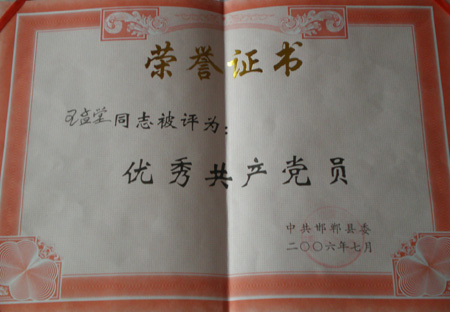 荣誉证书
王盛堂同志被评为：
优秀共产党员
中共邯郸县委
二〇〇六年七月